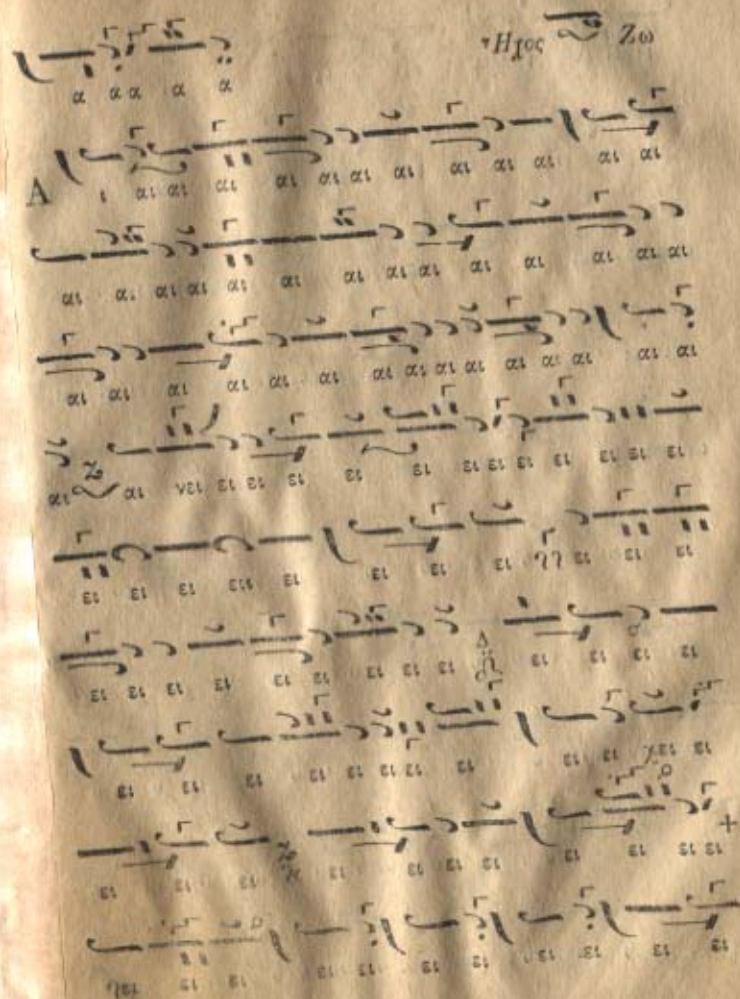 Ἦχος Ζω
α α α α α
Α ι αι αι αι αι αι αι αι αι αι αι αι αι
αι αι αι αι αι αι αι αι αι αι αι αι αι αι
αι αι αι αι αι αι αι αι αι αι αι αι αι αι αι
αι αι νει ει ει ει ει ει ει ει ει ει ει ει ει
ει ει ει ει ει ει ει ει ει ει ει
ει ει ει ει ει ει ει ει ει ει ει ει ει
ει ει ει ει ει ει ει ει ει ει ει ει
ει ει ει ει ει ει ει ει ει ει ει
ει ει ει ει ει ει ει ει ει ει